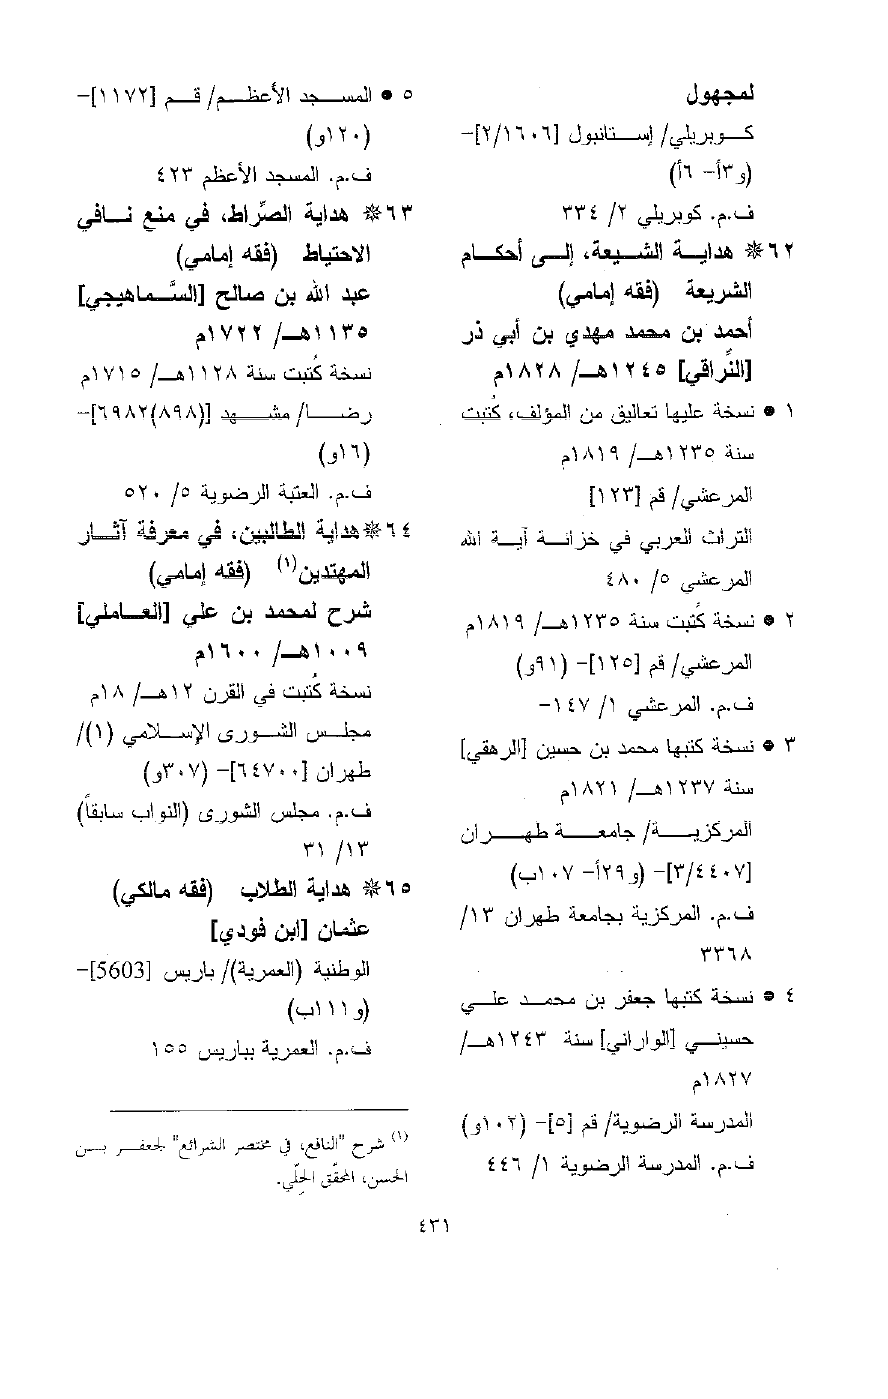 لمجهول
كوبريلي/ إستانبول [٢/١٦٠٦]-
(و٣أ- ٦أ)
ف.م. كوبريلي ٢/ ٣٣٤
٦٢* هداية الشيعة، إلى أحكام
الشريعة (فقه إمامي)
أحمد بن محمد مهدي بن أبي ذر
[النَّراقي] ١٢٤٥هـ/ ١٨٢٨م
١ • نسخة عليها تعاليق من المؤلف، كُتبت
سنة ١٢٣٥هـ/ ١٨١٩م
المرعشي/ قم [١٢٣]
التراث العربي في خزانة آية الله
المرعشي ٥/ ٤٨٠
٢ • نسخة كُتبت سنة ١٢٣٥هـ/ ١٨١٩م
المرعشي/ قم [١٢٥]- (٩١و)
ف.م. المرعشي ١/ ١٤٧-
٣ • نسخة كتبها محمد بن حسين [الرهقي]
سنة ١٢٣٧هـ/ ١٨٢١م
المركزية/ جامعة طهران
[٣/٤٤٠٧]- (و٢٩أ- ١٠٧ب)
ف.م. المركزية بجامعة طهران ١٣/
٣٣٦٨
٤ • نسخة كتبها جعفر بن محمد علي
حسيني [الواراني] سنة ١٢٤٣هـ/
١٨٢٧م
المدرسة الرضوية/ قم [٥]- (١٠٢و)
ف.م. المدرسة الرضوية ١/ ٤٤٦
٥ • المسجد الأعظم/ قم [١١٧٢]-
(١٢٠و)
ف.م. المسجد الأعظم ٤٢٣
٦٣* هداية الصِّراط، في منع نافي
الاحتياط (فقه إمامي)
عبد الله بن صالح [السَّماهيجي]
١١٣٥هـ/ ١٧٢٢م
نسخة كُتبت سنة ١١٢٨هـ/ ١٧١٥م
رضا/ مشهد [(٨٩٨)٦٩٨٢]-
(١٦و)
ف.م. العتبة الرضوية ٥/ ٥٢٠
٦٤* هداية الطالبين، في معرفة آثار
المهتدين(١) (فقه إمامي)
شرح لمحمد بن علي [العاملي]
١٠٠٩هـ/ ١٦٠٠م
نسخة كُتبت في القرن ١٢هـ/ ١٨م
مجلس الشورى الإسلامي (١)/
طهران [٦٤٧٠٠]- (٣٠٧و)
ف.م. مجلس الشورى (النواب سابقاً)
١٣/ ٣١
٦٥* هداية الطلاب (فقه مالكي)
عثمان [ابن فودي]
الوطنية (العمرية)/ باريس [5603]-
(و١١١ب)
ف.م. العمرية بباريس ١٥٥
(١) شرح "النافع، في مختصر الشرائع" لجعفر بن
الحسن، المحقّق الحِلّي.
٤٣١